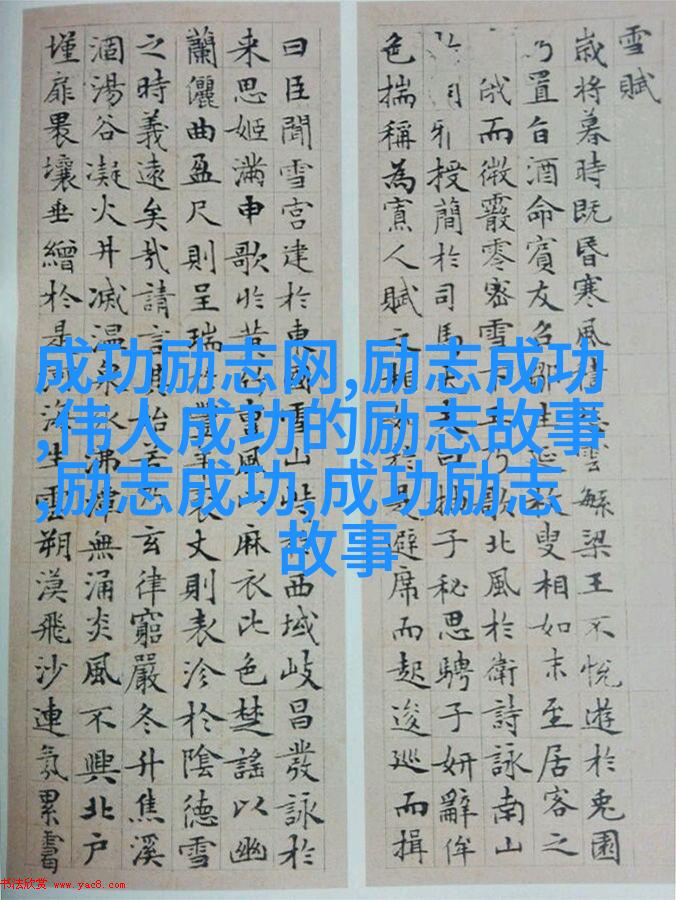 雪賦
歲將暮時既昏寒風積雲緐梁王不悅遊於兔園
乃置旨酒命賓友召鄒生延枚叟相如末至居客之
俄而微霰零密雪下王乃歌北風於衛詩詠南山
周雅授簡於司馬大夫曰抽子秘思騁子妍辭侔
色揣稱為寡人賦之相如於是避席而起逡巡而揖
曰臣聞雪宮建於東國雪山峙於西域岐昌發詠於
来思姬滿申歌於黃竹曹風以麻衣比色楚謠以幽
蘭儷曲盈尺則呈瑞於豐年袤丈則表沴於陰德雪
之時義遠矣哉請言其始若迺玄律窮嚴冬升焦溪
涸湯谷凝火井滅溫泉冰沸潭無涌炎風不興北户
墐扉壤垂繒於是河海生雲朔漠飛沙連氛累靄
成功励志网,励志成功
,伟人成功的励志故事
,励志成功,成功励志
故事
书法欣赏 www.yac8.com